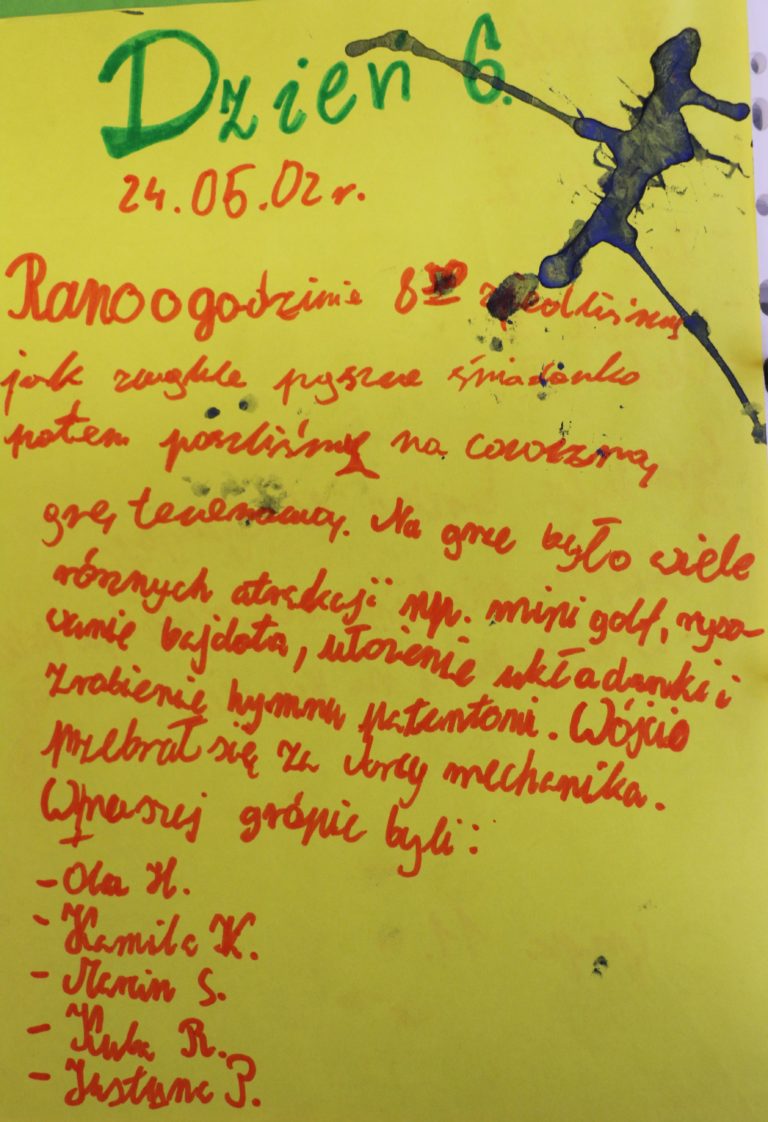 Dzień 6.
24.05.02 r.
Rano o godzinie 8³⁰ zjedliśmy
jak zwykle pyszne śniadanko
potem poszliśmy na coroczną
grę terenową. Na grze było wiele
różnych atrakcji np. mini golf, ryso-
wanie bajdoła, ułożenie układanki i
zrobienie hymnu patentoni. Wójcio
przebrał się za mechanika.
W naszej grópie byli:
- Ola H.
- Kamila K.
- Marcin S.
- Kuba R.
- Justyna P.